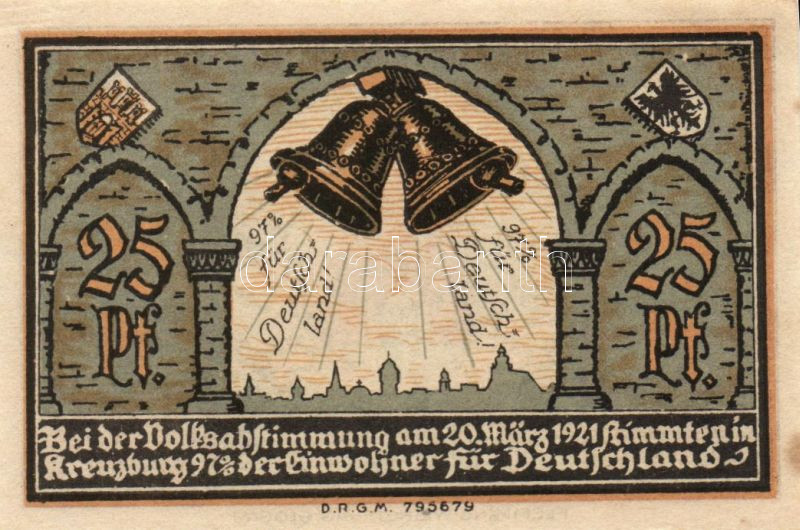 97%
für
Deutsch=
land!
97%
für
Deutsch=
land!
25
Pf.
25
Pf.
darabanth
Bei der Volksabstimmung am 20. März 1921 stimmten in
Kreuzburg 97% der Einwohner für Deutschland
D.R.G.M. 795679